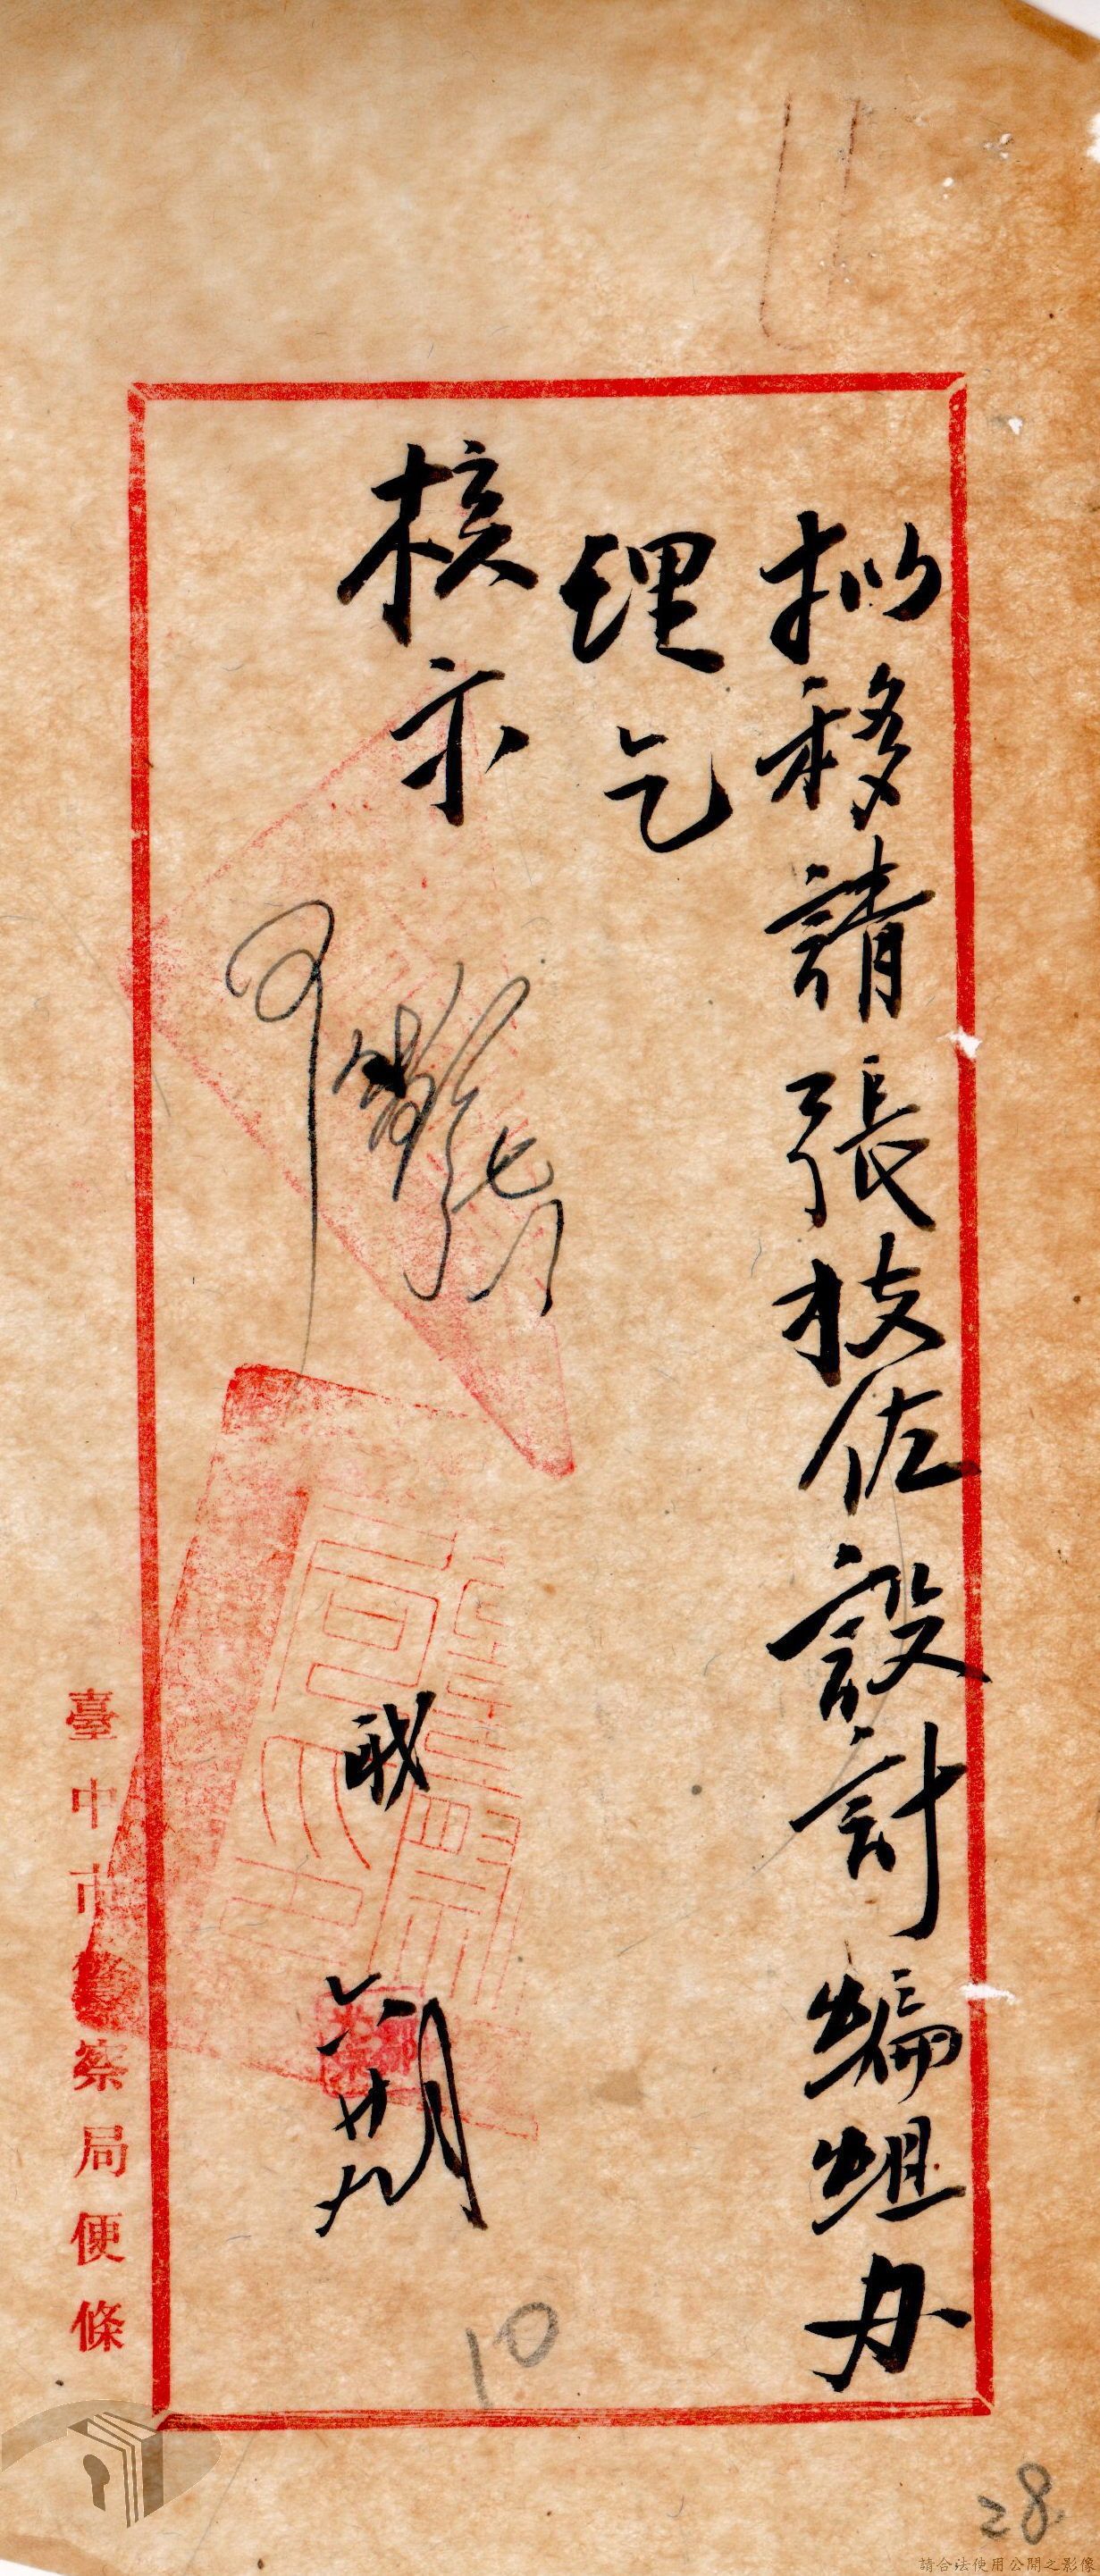 拟移請張技佐設計編組办
理乞
核示
可
職
六月廿九
臺中市警察局便條
10
28
請合法使用公開之影像